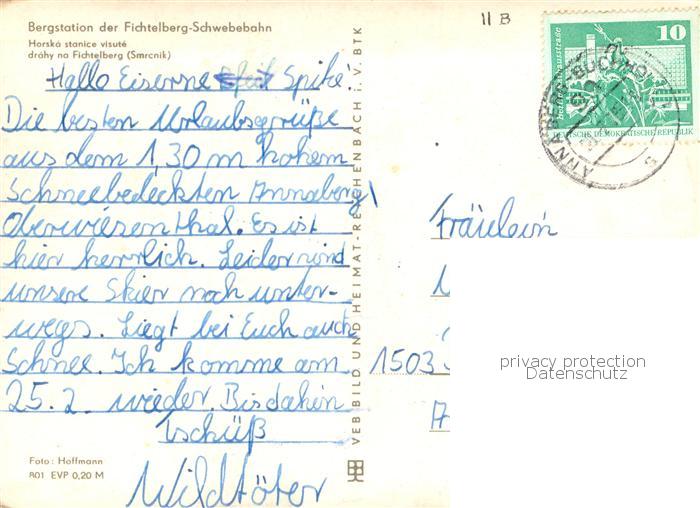 Bergstation der Fichtelberg-Schwebebahn
Horská stanice visuté
dráhy na Fichtelberg (Smrcnik)
11 B
10
DEUTSCHE DEMOKRATISCHE REPUBLIK
ANNABERG-BUCHHOLZ
Hallo Eiserne Spike!
Die besten Urlaubsgrüße
aus dem 1,30 m hohem
Schneebedeckten Annaberg/
Oberwiesenthal. Es ist
hier herrlich. Leider sind
unsere Skier noch unter-
wegs. Liegt bei Euch auch
Schnee. Ich komme am
25.2. wieder. Bis dahin
Tschüß
Wildtöter
Foto: Hoffmann
801 EVP 0,20 M
VEB BILD UND HEIMAT - REICHENBACH i. V. BTK
Fräulein
1503
privacy protection
Datenschutz